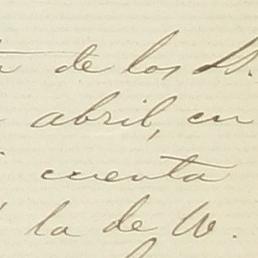 de los D.
abril, en
cuenta
la de W.